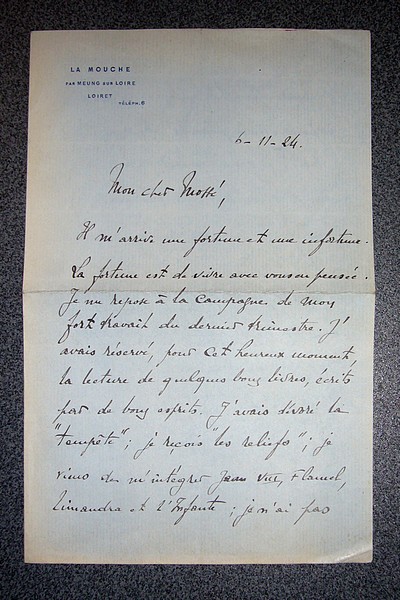 LA MOUCHE
PAR MEUNG SUR LOIRE
LOIRET
TÉLÉPH. 8
6-11-24.
Mon cher Mossé,
Il m'arrive une fortune et une infortune.
La fortune est de vivre avec vous en pensée.
Je me repose à la campagne de mon
fort travail du dernier trimestre. J'
avais réservé, pour cet heureux moment,
la lecture de quelques bons livres, écrits
par de bons esprits. J'avais dévoré la
"tempête" ; je reçois "les reliefs" ; je
viens de m'intégrer Flamel,
Limandra et l'Infante ; je n'ai pas